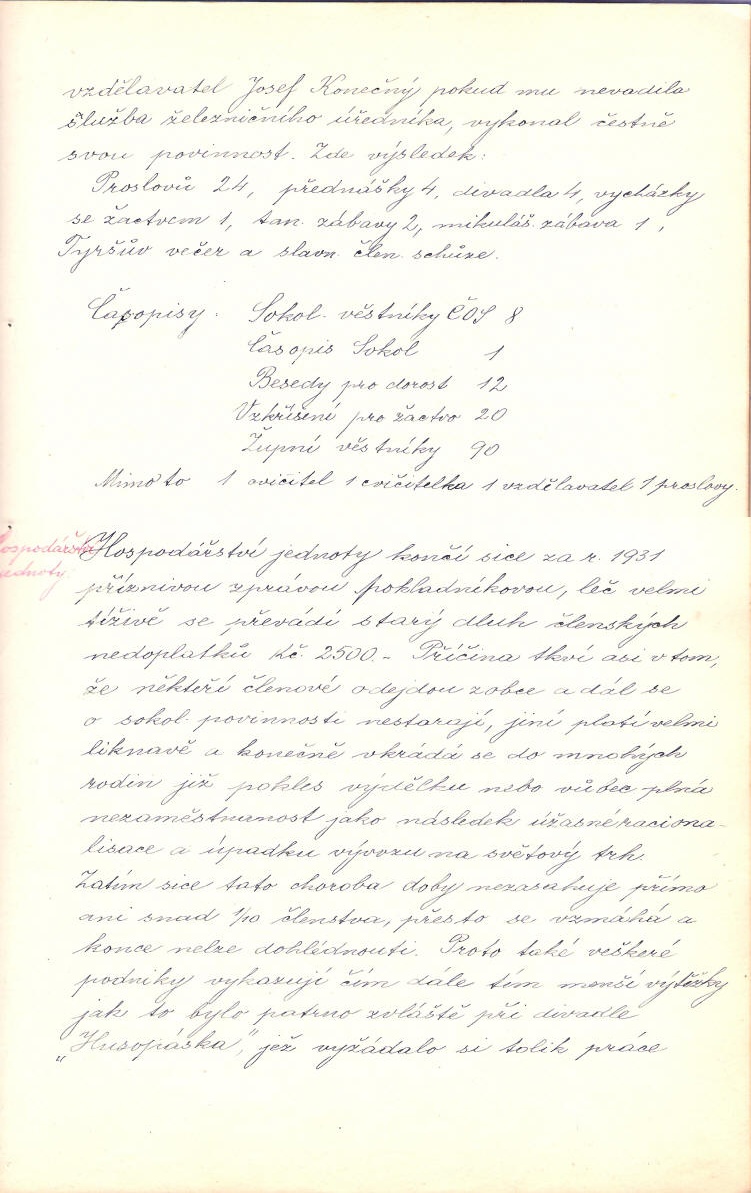 vzdělavatel Josef Konečný pokud mu nevadila
služba železničního úředníka, vykonal čestně
svou povinnost. Zde výsledek:
Proslovů 24, přednášky 4, divadla 4, vycházky
se žactvem 1, tan. zábavy 2, mikuláš. zábava 1,
Tyršův večer a slavn. člen. schůze.
Časopisy: Sokol. věstníky ČOS 8
Časopis Sokol 1
Besedy pro dorost 12
Vzkříšení pro žactvo 20
Župní věstníky 90
Mimo to 1 cvičitel 1 cvičitelka 1 vzdělavatel 1 proslovy.
Hospodářství jednoty končí sice za r. 1931
příznivou zprávou pokladníkovou, leč velmi
tíživě se převádí starý dluh členských
nedoplatků Kč. 2500.- Příčina tkví asi v tom,
že někteří členové odejdou z obce a dál se
o sokol. povinnosti nestarají, jiní platí velmi
liknavě a konečně vkrádá se do mnohých
rodin již pokles výdělku nebo vůbec plná
nezaměstnanost jako následek úžasné raciona-
lisace a úpadku vývozu na světový trh.
Zatím sice tato choroba doby nezasahuje přímo
ani snad 1/10 členstva, přesto se vzmáhá a
konce nelze dohlédnouti. Proto také veškeré
podniky vykazují čím dále tím menší výtěžky
jak to bylo patrno zvláště při divadle
„Husopáska", jež vyžádalo si tolik práce